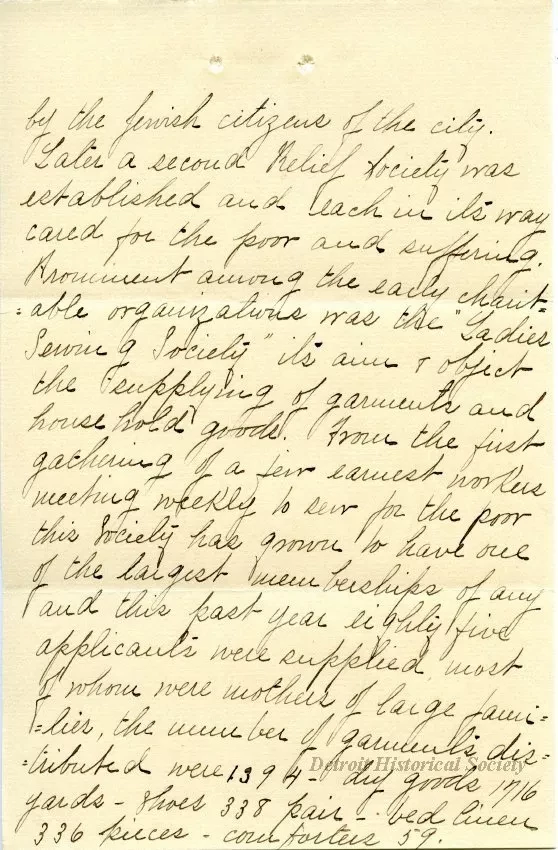 by the Jewish citizens of the city.
Later a second Relief Society was
established and each in its way
cared for the poor and suffering.
Prominent among the early charit=
=able organizations was the "Ladies
Sewing Society" its aim & object
the supplying of garments and
household goods. From the first
gathering of a few earnest workers
meeting weekly to sew for the poor
this Society has grown to have one
of the largest memberships of any
and this past year eighty five
applicants were supplied, most
of whom were mothers of large fami=
=lies, the number of garments dis=
=tributed were 1394 - dry goods 1716
Detroit Historical Society
yards - shoes 338 pair - bed linen
336 pieces - comforters 59.